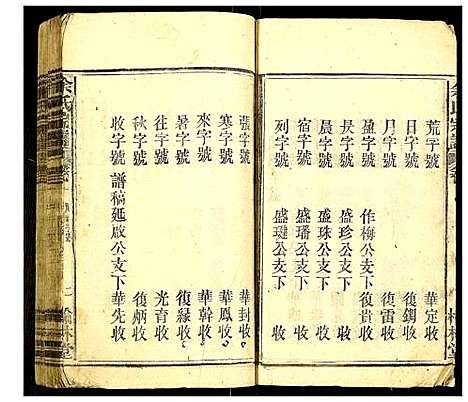 余氏宗譜
荒字號 華定收
日字號 復鐲收
月字號 復雷收
盈字號 作梅公支下復貴收
昃字號 盛珍公支下 收
辰字號 盛珠公支下 收
宿字號 盛璠公支下 收
列字號 盛璉公支下 收
張字號 華封收
寒字號 華鳳收
來字號 華幹收
暑字號 復緣收
往字號 光育收
秋字號 復炳收
收字號 譜稿延啟公支下華先收
余氏宗譜
二